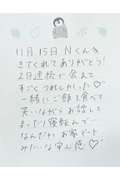 11月15日 Nくん♡
きてくれてありがとう!
2日連続で会えて
すごくうれしかった♡
一緒にご飯も食べて
笑いながらお話して
まったり寝転んで
なんだかお家デート
みたいな安心感♡